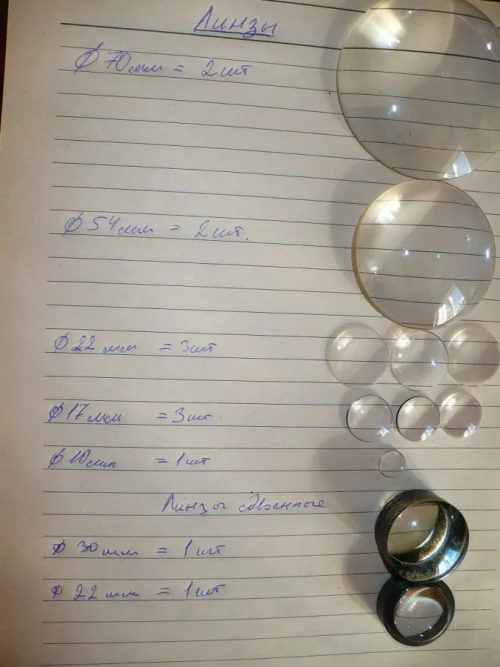 Линзы
Ф 70мм = 2 шт
Ф 54мм = 2 шт.
Ф 22 мм = 3шт
Ф 17мм = 3шт.
Ф 10мм = 1 шт
Линзы сдвоенные
Ф 30мм = 1 шт
Ф 22 мм = 1 шт